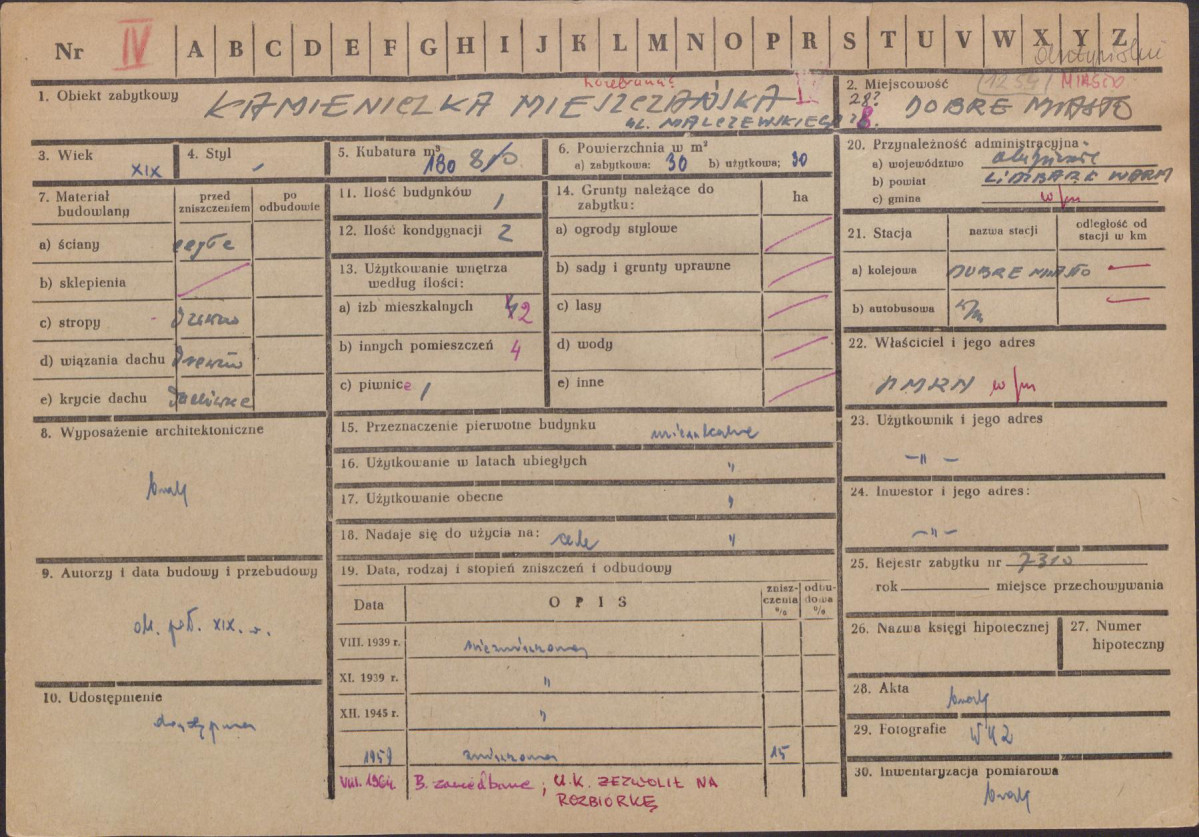 Nr IV A B C D E F G H I J K L M N O P R S T U V W X Y Z
1. Obiekt zabytkowy
KAMIENICZKA MIESZCZAŃSKA
UL. MALCZEWSKIEGO 8.
28?
2. Miejscowość
MIASTO
DOBRE MIASTO
3. Wiek XIX
4. Styl
5. Kubatura m³ 180
6. Powierzchnia w m²
a) zabytkowa: 30 b) użytkowa: 30
20. Przynależność administracyjna
a) województwo
b) powiat LIDZBARK WARM
c) gmina w/m
7. Materiał budowlany
przed zniszczeniem
po odbudowie
a) ściany cegła
b) sklepienia
c) stropy drewno
d) wiązania dachu drewno
e) krycie dachu
11. Ilość budynków 1
12. Ilość kondygnacji 2
13. Użytkowanie wnętrza
według ilości:
a) izb mieszkalnych 2
b) innych pomieszczeń 4
c) piwnice 1
14. Grunty należące do
zabytku:
ha
a) ogrody stylowe
b) sady i grunty uprawne
c) lasy
d) wody
e) inne
21. Stacja
nazwa stacji
odległość od
stacji w km
a) kolejowa DOBRE MIASTO —
b) autobusowa w/m —
22. Właściciel i jego adres
w/m
8. Wyposażenie architektoniczne
brak
15. Przeznaczenie pierwotne budynku mieszkalne
16. Użytkowanie w latach ubiegłych "
17. Użytkowanie obecne "
18. Nadaje się do użycia na: cele "
23. Użytkownik i jego adres
— " —
24. Inwestor i jego adres:
— " —
9. Autorzy i data budowy i przebudowy
ok. poł. XIX. w.
10. Udostępnienie
dostępna
19. Data, rodzaj i stopień zniszczeń i odbudowy
Data
OPIS
znisz-
czenia
%
odbu-
dowa
%
VIII. 1939 r. niezniszczona
XI. 1939 r. "
XII. 1945 r. "
1959 zniszczona 15
VIII. 1964 B. zaniedbane ; U.K. ZEZWOLIŁ NA
ROZBIÓRKĘ
25. Rejestr zabytku nr 7310
rok miejsce przechowywania
26. Nazwa księgi hipotecznej
27. Numer
hipoteczny
28. Akta brak
29. Fotografie WKZ
30. Inwentaryzacja pomiarowa
brak